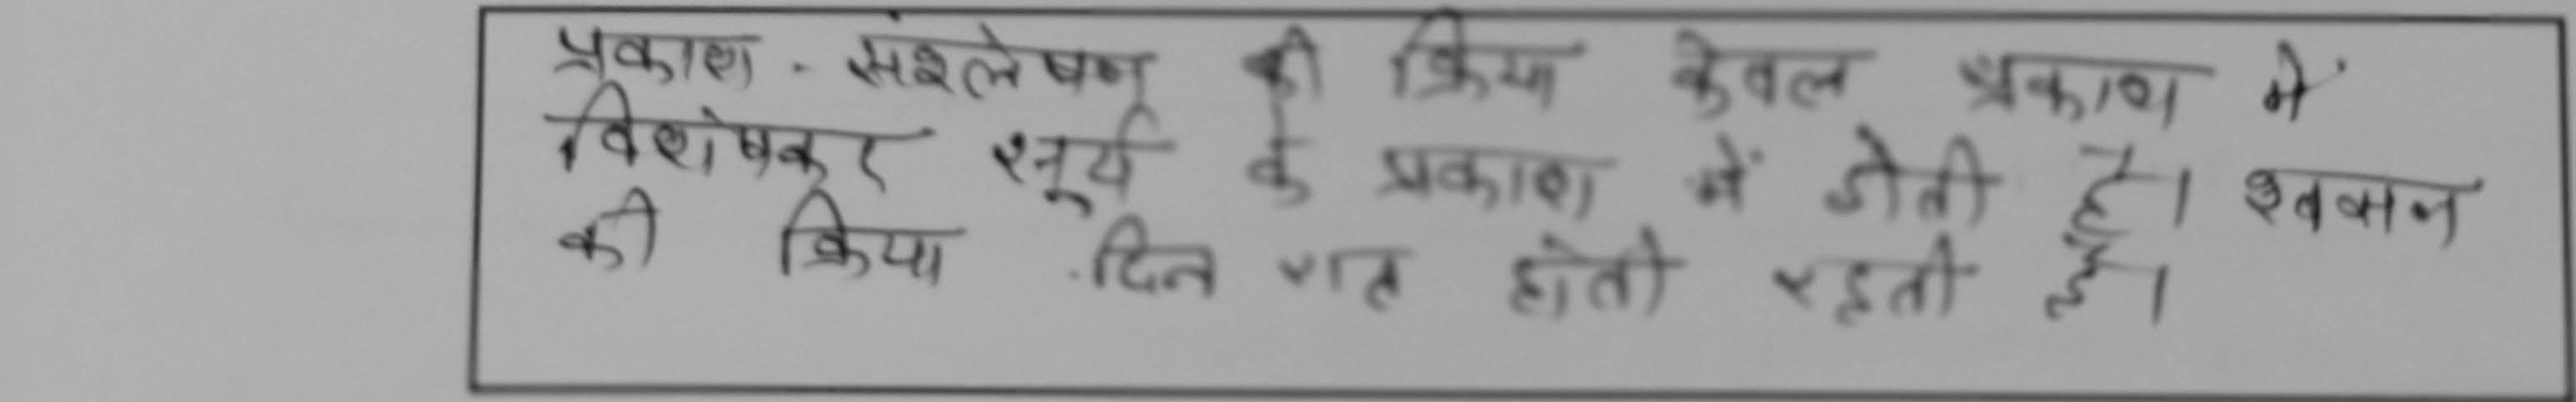 प्रकाश - संश्लेषण की क्रिया केवल प्रकाश में
विशेषकर सूर्य के प्रकाश में होती है। श्वसन
की क्रिया दिन रात होती रहती है।